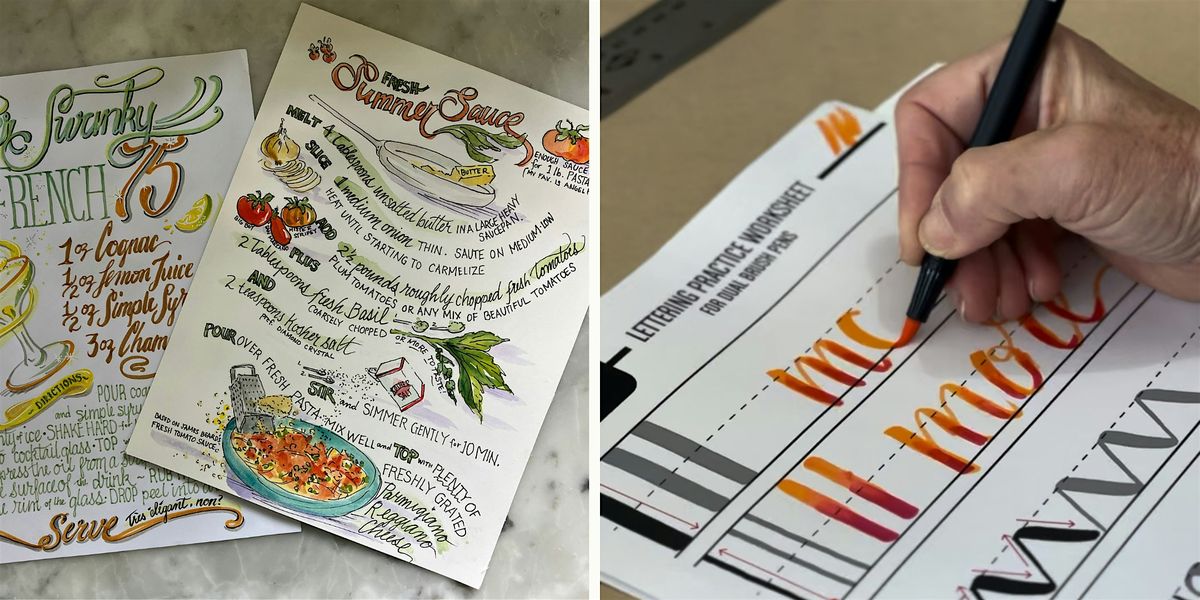 Swanky
FRENCH 75
1 oz Cognac
1/2 oz lemon Juice
1/2 oz Simple
3 oz
DIRECTIONS
POUR
and simple
ice SHAKE HARD
cocktail glass TOP
press the oil from a
surface of the drink RUB
rim of the glass. DROP peel into
Serve Très élégant, non?
FRESH
Summer Sauce
MELT 4 Tablespoons unsalted butter IN A LARGE HEAVY
SAUCEPAN
BUTTER
ENOUGH SAUCE
for 1 lb. PASTA
SLICE 1 medium onion THIN. SAUTE ON MEDIUM-LOW
HEAT UNTIL STARTING TO CARMELIZE
ADD 2 1/2 pounds roughly chopped fresh tomatoes
PLUM TOMATOES OR ANY MIX OF BEAUTIFUL TOMATOES
PLUS
2 Tablespoons fresh Basil
COARSELY CHOPPED OR MORE TO TASTE
AND
2 teaspoons kosher salt
PREF. DIAMOND CRYSTAL
STIR and SIMMER GENTLY for 10 MIN.
POUR OVER FRESH
PASTA. MIX WELL and TOP WITH PLENTY OF
FRESHLY GRATED
Parmigiano
Reggiano
Cheese
BASED ON JAMES BEARD'S
FRESH TOMATO SAUCE
LETTERING PRACTICE WORKSHEET
FOR DUAL BRUSH PENS